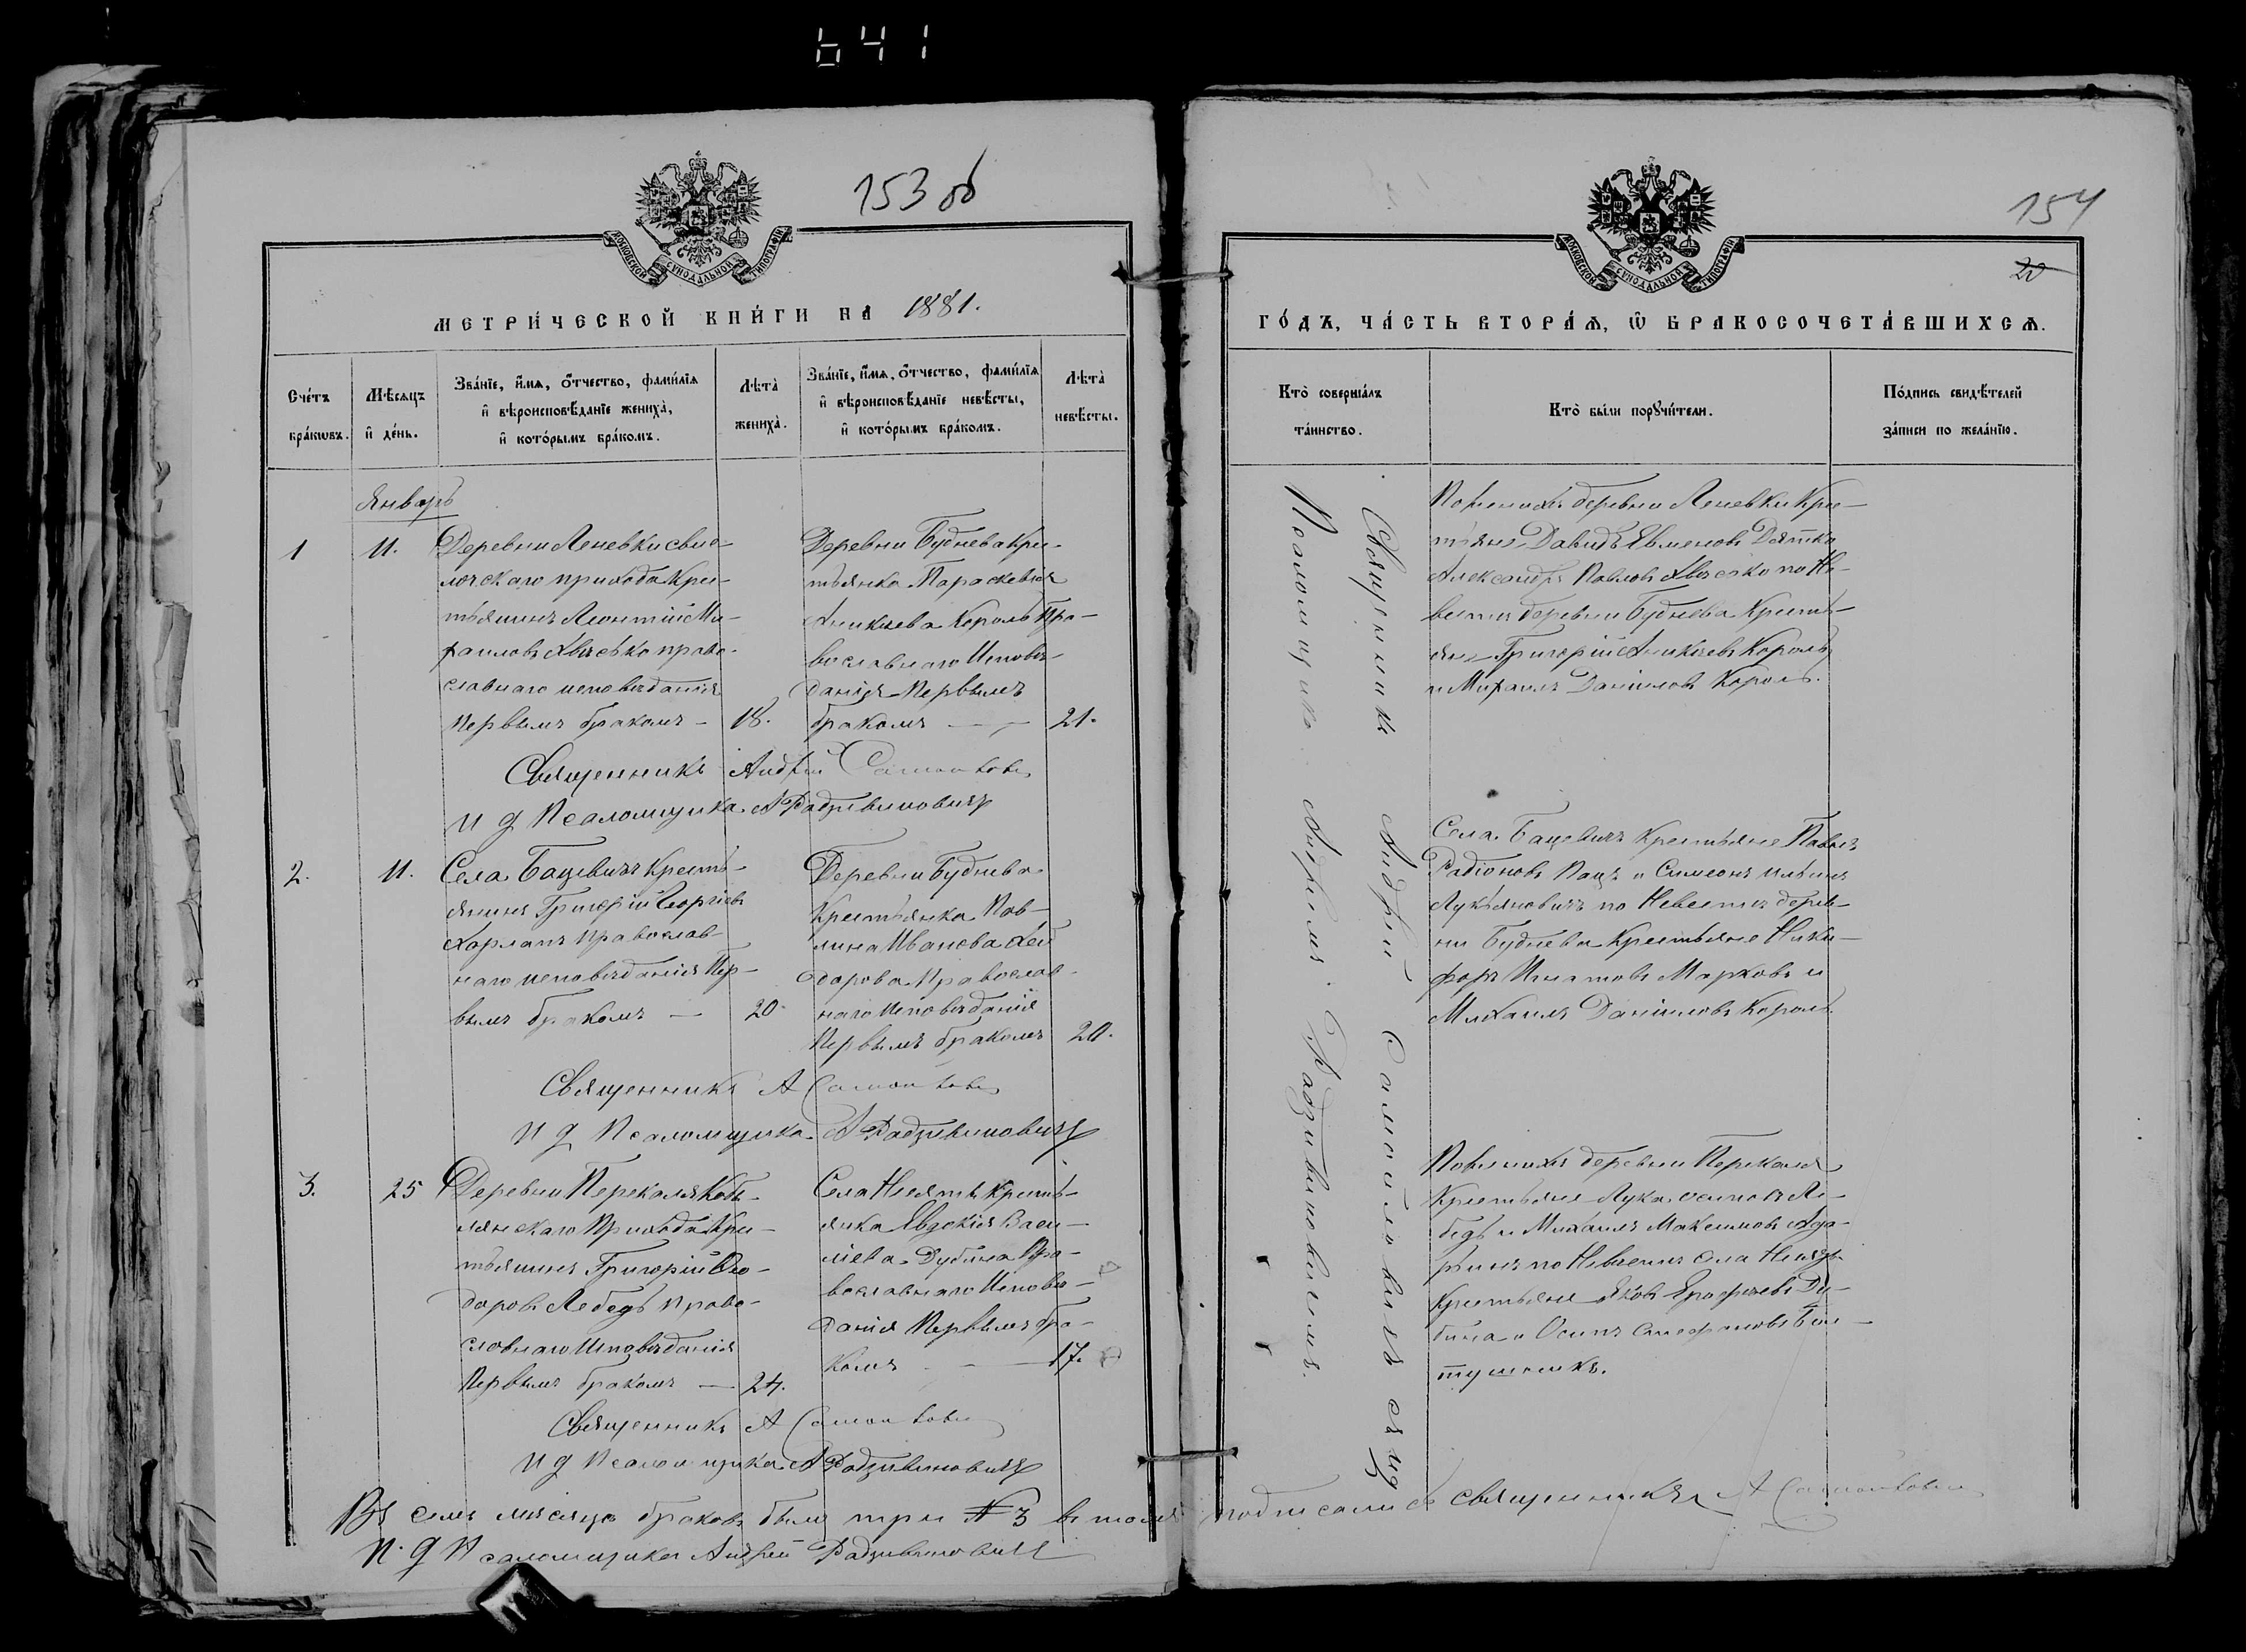 641
153 об
МОСКОВСКОЙ СУНОДАЛЬНОЙ ТИПОГРАФІИ
МЕТРИ́ЧЕСКОЙ КНИ́ГИ НА 1881.
Сче́тъ бра́кѡвъ.
Мѣ́сяцъ и҆ де́нь.
Зва́нїе, и҆́мѧ, ѻ҆́тчество, фами́лїѧ и҆ вѣроисповѣ́данїе жениха̀, и҆ кото́рымъ бра́комъ.
Лѣта̀ жениха̀.
Зва́нїе, и҆́мѧ, ѻ҆́тчество, фами́лїѧ и҆ вѣроисповѣ́данїе невѣ́сты, и҆ кото́рымъ бра́комъ.
Лѣта̀ невѣ́сты.
Январь
1
11.
Деревни Леневки свис-
лочскаго прихода Кре-
стьянинъ Леонтій Ми-
хаиловъ Хвесько право-
славнаго исповѣданія
первымъ бракомъ – 18.
Деревни Буднева Кре-
стьянка Параскевія
Аникіева Король Пра-
вославнаго Исповѣ-
данія Первымъ
бракомъ — 21.
Священникъ Андрей Самойловичъ
И д Псаломщика А Радзивиновичъ
2.
11.
Села Бацевичъ Кресть-
янинъ Григорій Георгіевъ
Харланъ православ-
наго исповѣданія Пер-
вымъ бракомъ — 20.
Деревни Буднева
Крестьянка Пав-
лина Иванова Хей
дорова Православ-
наго Исповѣданія
Первымъ бракомъ 20.
Священникъ А Самойловичъ
И д Псаломщика А Радзивиновичъ
3.
25
Деревни Перекаля Коб-
лянскаго Прихода Кре-
стьянинъ Григорій Ѳео-
доровъ Лебедь право-
славнаго Исповѣданія
Первымъ бракомъ — 24.
Села Несятъ Кресть-
янка Евдокія Васи-
ліева Дубина Пра-
вославнаго Исповѣ-
данія Первымъ бра-
комъ — 17.
Священникъ А Самойловичъ
И д Псаломщика А Радзивиновичъ
Въ семъ мѣсяцѣ браковъ было три № 3 въ томъ подписались священникъ А Самойловичъ
И. д Псаломщика Андрей Радзивиновичъ
154
20
МОСКОВСКОЙ СУНОДАЛЬНОЙ ТИПОГРАФІИ
ГО́ДЪ, ЧА́СТЬ ВТОРА́Ѧ, Ѡ҆ БРАКОСОЧЕТА́ВШИХСѦ.
Кто̀ соверша́лъ та́инство.
Кто̀ бы́ли порꙋчи́тели.
По́дпись свидѣ́телей за́писи по жела́нїю.
Священникъ Андрей Самойловичъ съ ид
Псаломщика Андреемъ Радзивиновичемъ.
По женихѣ деревни Леневки Кре-
стьяне Давидъ Евменовъ Дятко
Александръ Павловъ Хвесько по Не-
вестѣ деревни Буднева Кресть-
яне Григорій Аникіевъ Король
и Михаилъ Даніиловъ Король.
Села Бацевичъ Крестьяне Павелъ
Радіоновъ Пацъ и Симеонъ Ильинъ
Лукьяновичъ по Невестѣ дерев-
ни Буднева Крестьяне Ники-
форъ Игнатовъ Марковъ и
Михаилъ Даніиловъ Король.
По женихѣ деревни Перекаля
Крестьяне Лука осиповъ Ле-
бедь и Михаилъ Максимовъ
по Невестѣ села Несятъ
Крестьяне Яковъ Ерофеевъ Ду-
бина и Осипъ Стефановъ